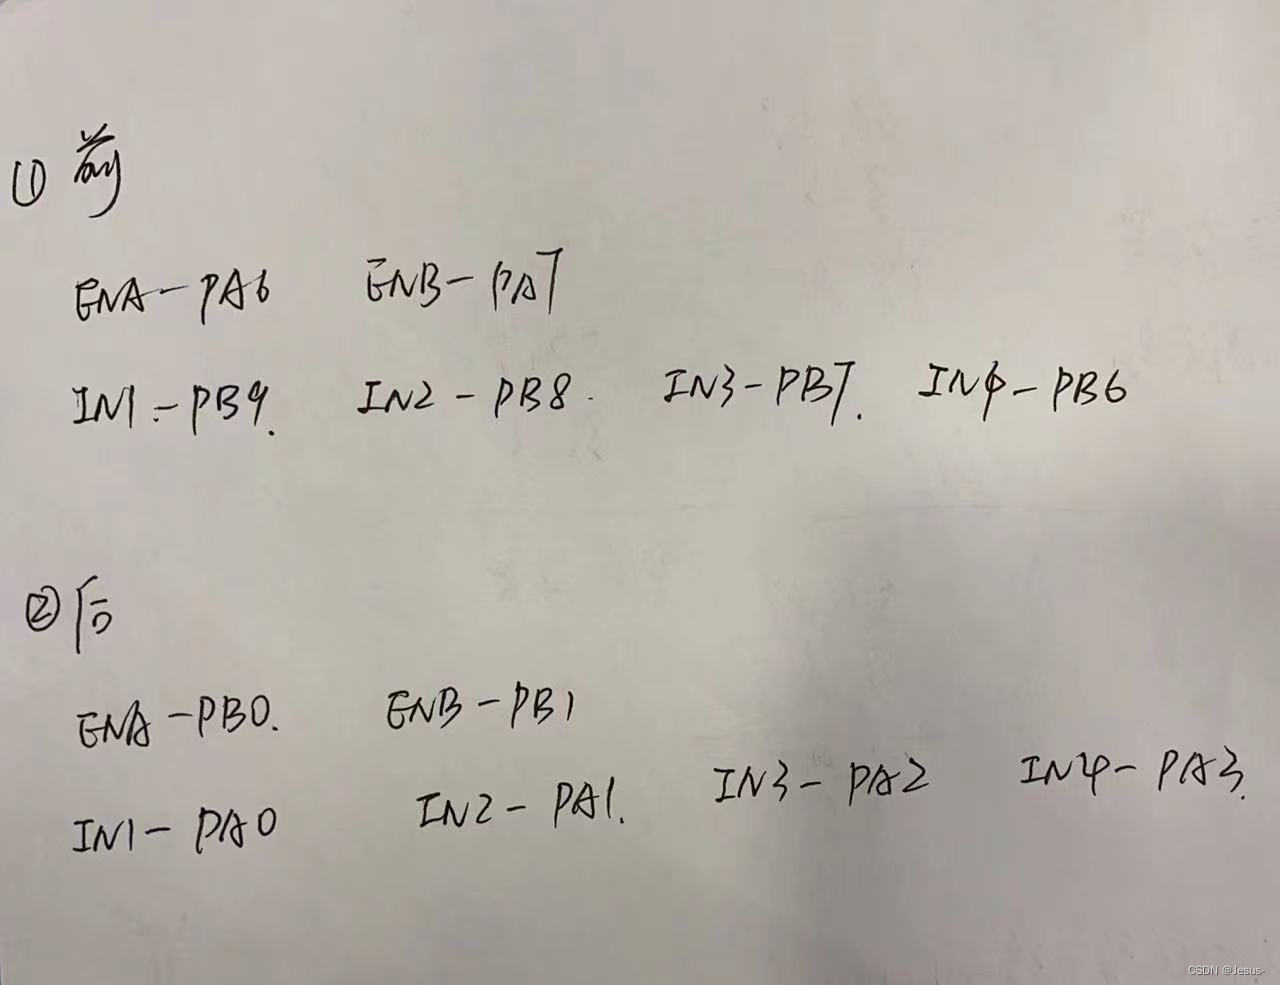 ① 前
ENA-PA6 ENB-PA7
IN1-PB9. IN2-PB8. IN3-PB7. IN4-PB6
② 后
ENA-PB0. ENB-PB1
IN1-PA0 IN2-PA1. IN3-PA2 IN4-PA3.
CSDN @Jesus-